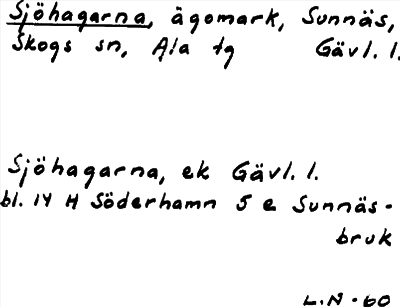 Sjöhagarna, ägomark, Sunnäs,
Skogs sn, Ala tg Gävl. l.
Sjöhagarna, ek Gävl. l.
bl. 14 H Söderhamn 5 e Sunnäs-
bruk
L.N - 60